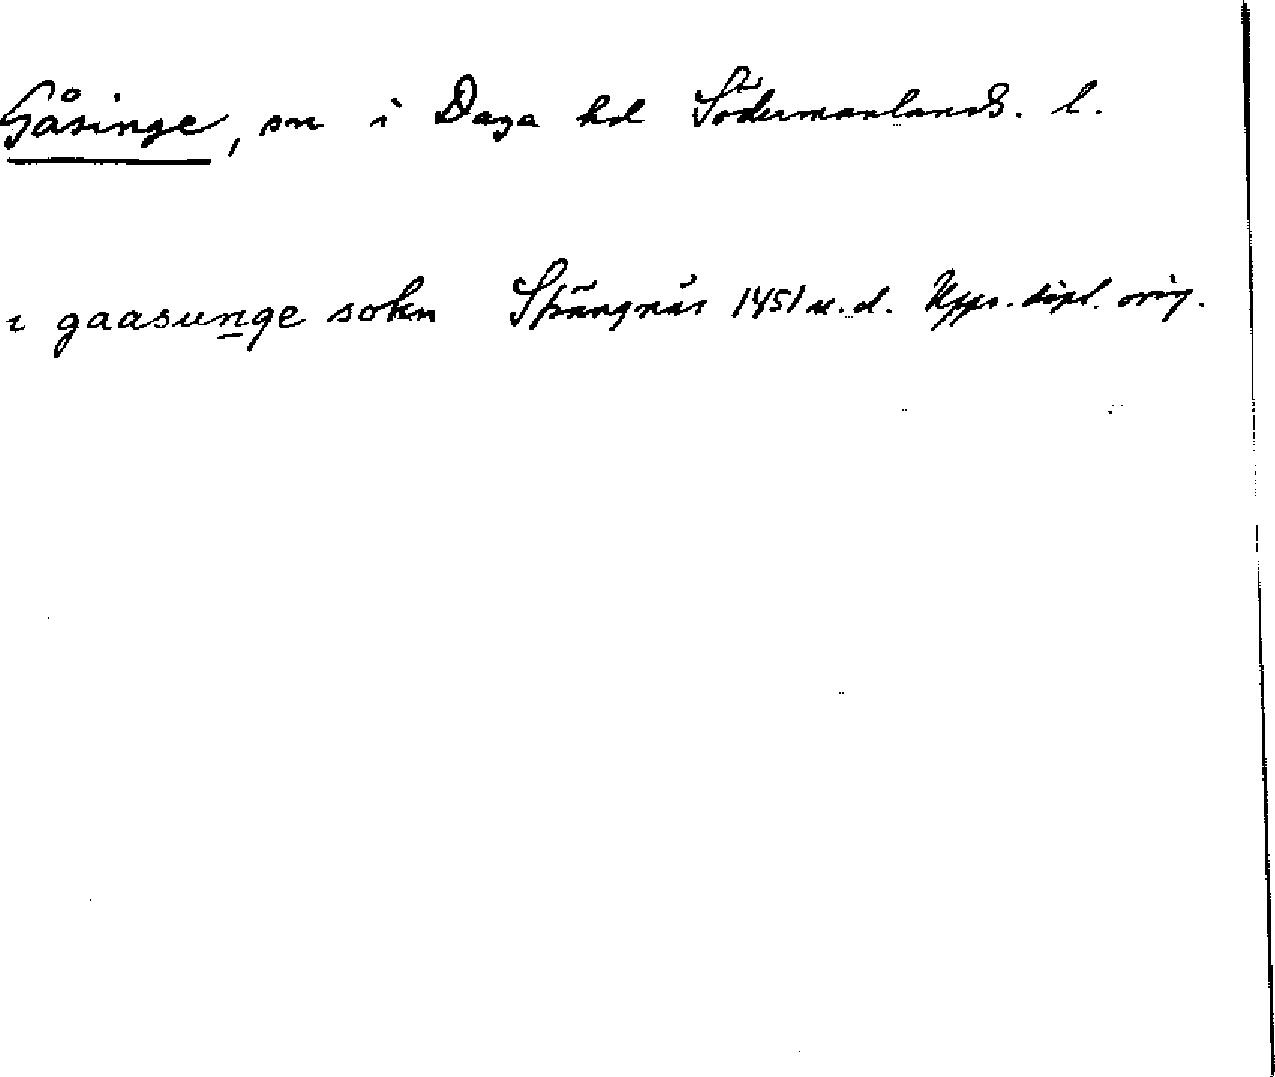 Gåsinge, sn i Daga hd Södermanlands. l.
i gaasunge sokn Strängnäs 1451 u. d. Upps. dipl. orig.